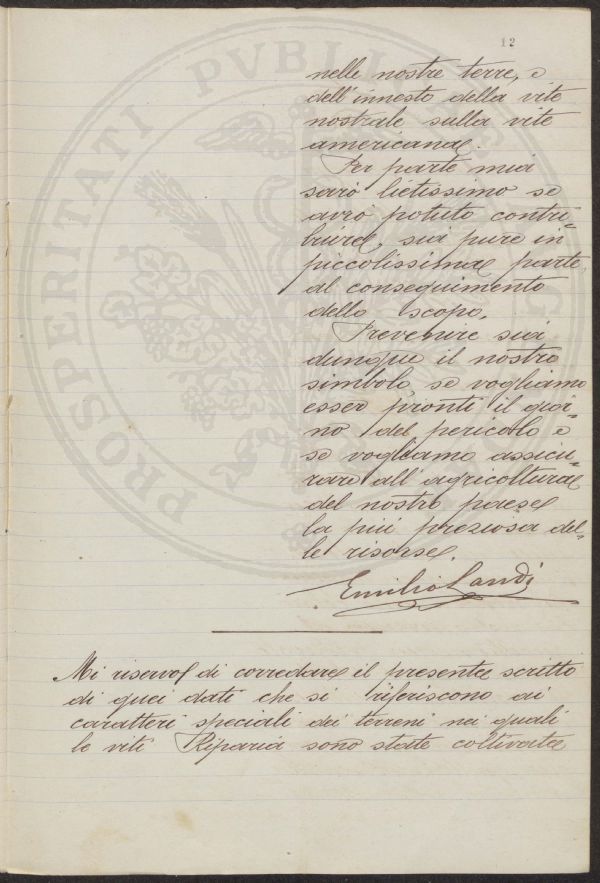 12
nelle nostre terre, e
dell'innesto della vite
nostrale sulla vite
americana.
Per parte mia
sarò lietissimo se
avrò potuto contri-
buire, sia pure in
piccolissima parte,
al conseguimento
dello scopo.
Prevenire sia
dunque il nostro
simbolo, se vogliamo
esser pronti il gior-
no del pericolo e
se vogliamo assicu-
rare all'agricoltura
del nostro paese
la più preziosa del-
le risorse.
Emilio Landi
Mi riservo di corredare il presente scritto
di quei dati che si riferiscono ai
caratteri speciali dei terreni nei quali
le viti Riparia sono state coltivate
PROSPERITATI PVBLICAE